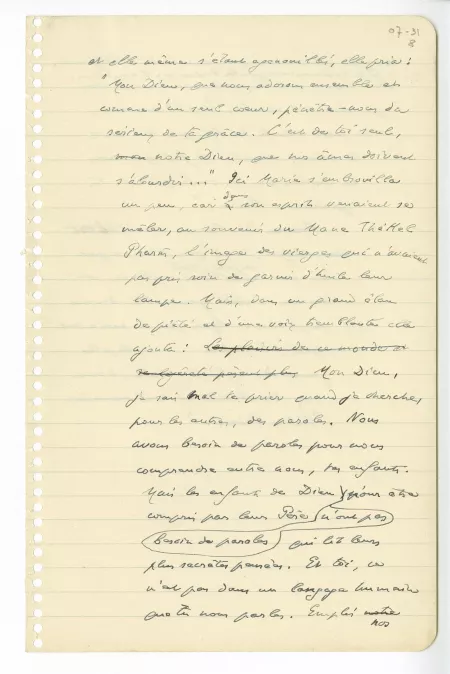 07-31
8
et elle même s'étant agenouillée, elle pria :
"Mon Dieu, que nous adorons ensemble et
comme d'un seul cœur, pénètre-nous du
sérieux de ta grâce. C'est de toi seul,
notre Dieu, que nos âmes doivent
s'alourdir..." Ici Maria s'embrouilla
un peu, car dans son esprit venaient se
mêler, au souvenir du Mane Thékel
Pharès, l'image des vierges qui n'avaient
pas pris soin de garnir d'huile leur
lampe. Mais, dans un grand élan
de piété et d'une voix tremblante elle
ajouta : Les plaisirs de ce monde et
sa légèreté pèsent plus Mon Dieu,
je sais mal te prier quand je cherche,
pour les autres, des paroles. Nous
avons besoin de paroles pour nous
comprendre entre nous, tes enfants.
Mais les enfants de Dieu pour être
compris par leur Père n'ont pas
besoin de paroles qui lit leurs
plus secrètes pensées. Et toi, ce
n'est pas dans un langage humain
que tu nous parles. Emplis notre
nos